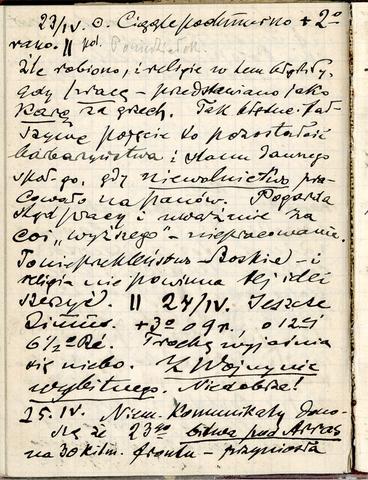 23/IV. o. Ciągle pochmurno + 2°
rano. || pol. Poniedziałek.
Źle robiono, i religie w tem błądziły,
gdy pracę – przedstawiano jako
karę za grzech. Tak błędne, fał-
szywe pojęcie to pozostałość
barbarzyństwa i stanu dawnego
społ-go, gdy niewolnictwo pra-
cowało na panów. Pogarda
stąd pracy i uważanie za
coś „wyższego" – niepracowanie.
To nie przekleństwo – Boskie – i
religia nie powinna tej idei
szerzyć. || 24/IV. Jeszcze
zimno. + 3° o 9 r., o 12-ej
6 ½° Ré. Trochę wyjaśnia
się niebo. Z Wojny nic
wybitnego. Niedobrze!
25.IV. Niem. Komunikaty dono-
szą że 23go bitwa pod Arras
na 30 kilm. frontu – przyniosła